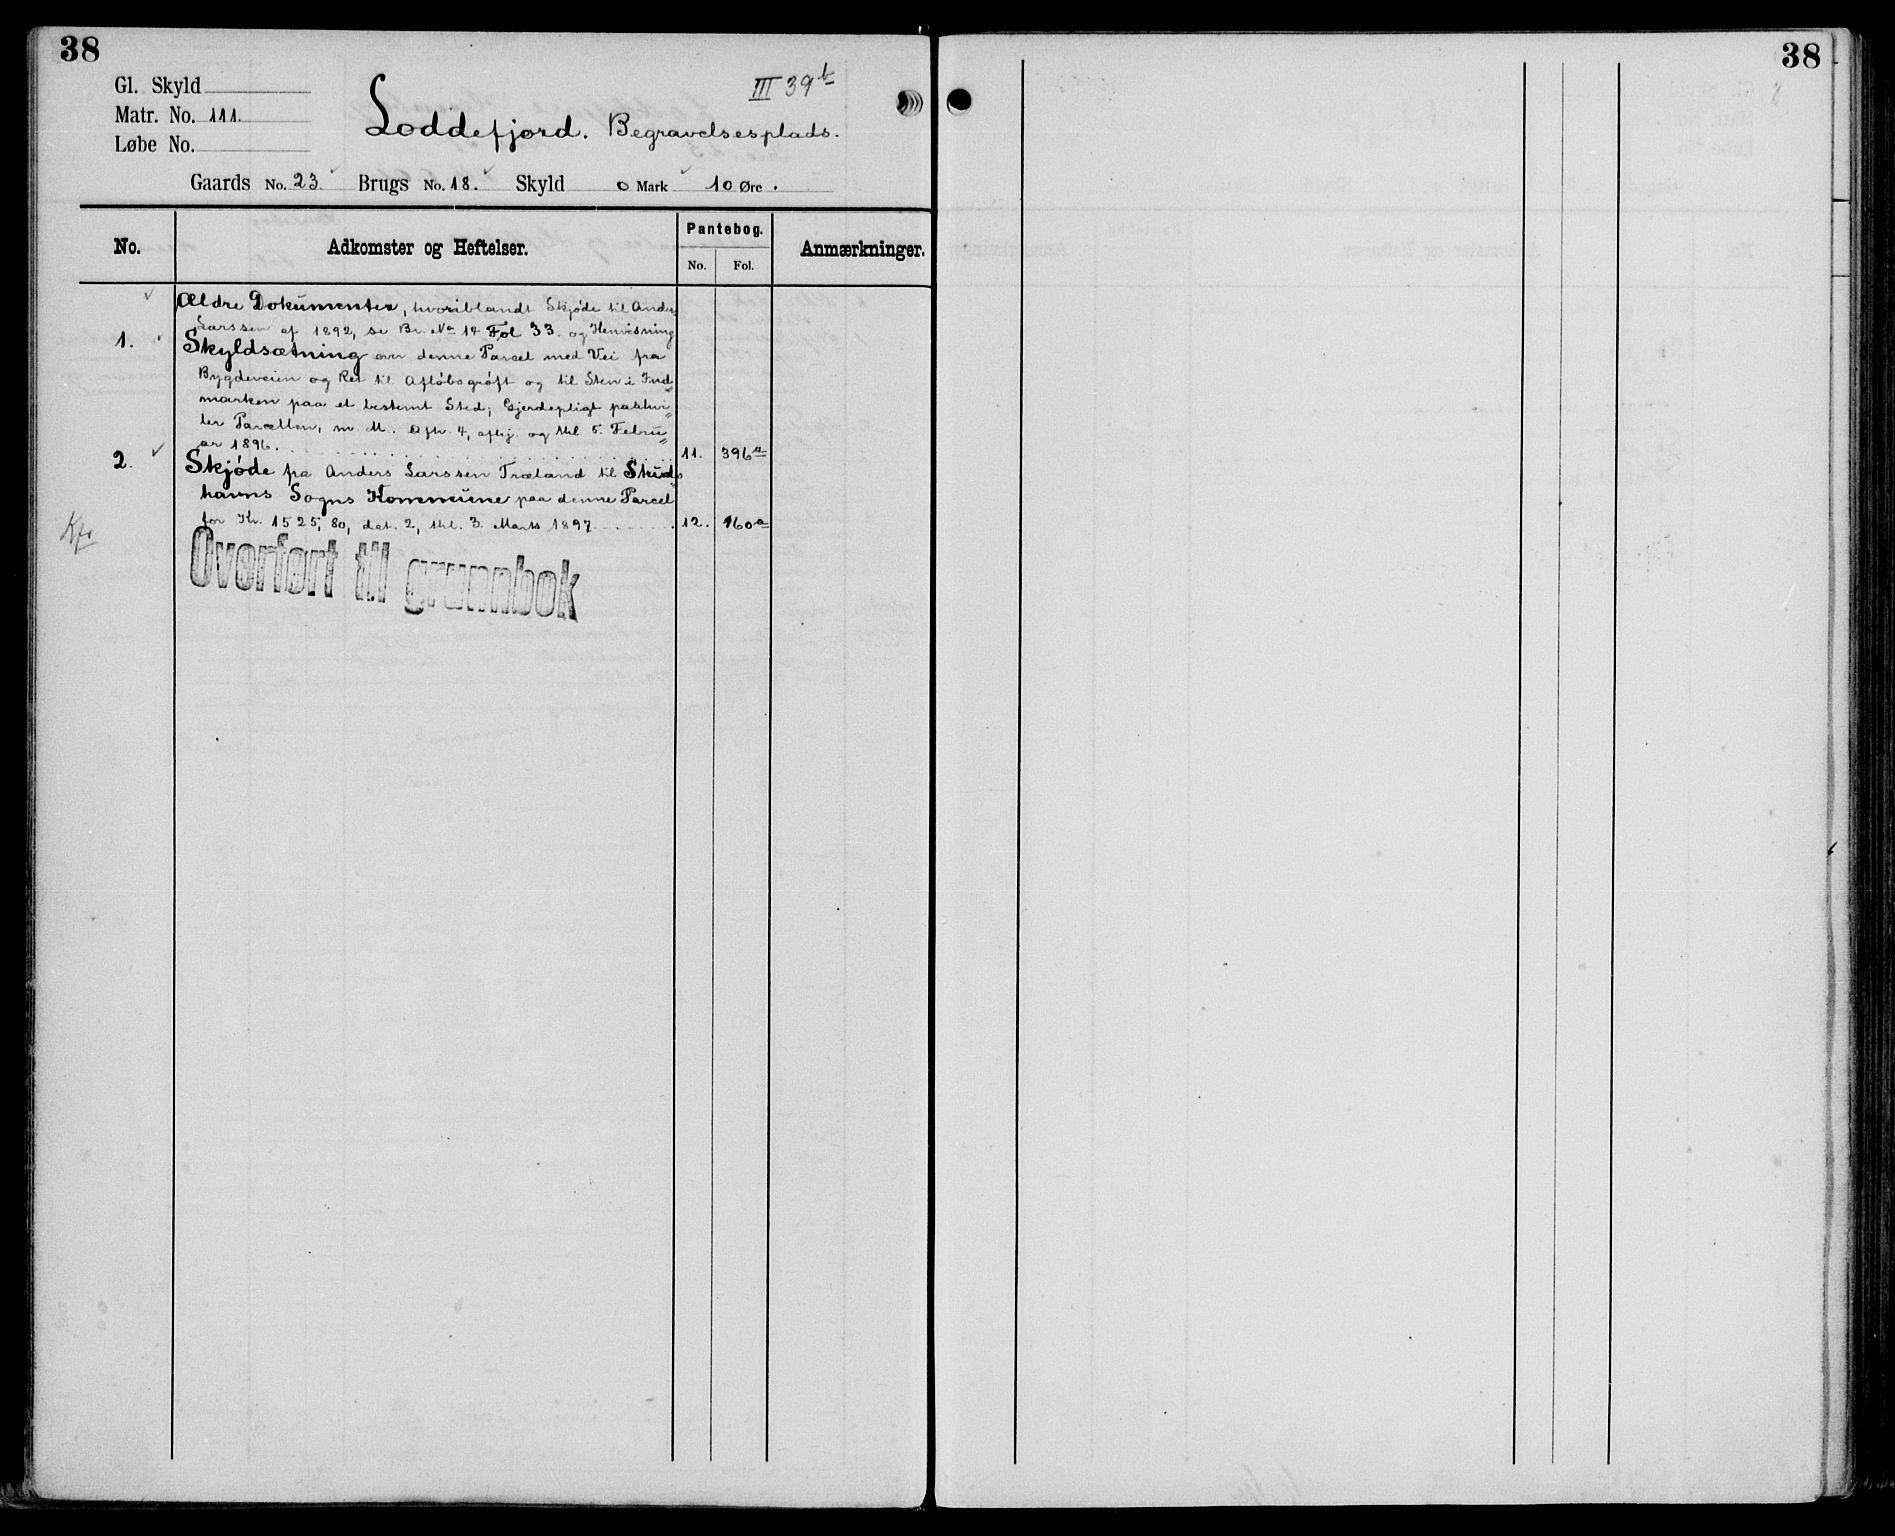 38
Gl. Skyld
Matr. No. 111.
Løbe No.
III 39b
Loddefjord. Begravelsesplads.
Gaards No. 23 Brugs No. 18. Skyld 0 Mark 10 Øre.
No. Adkomster og Heftelser. Pantebog. Anmærkninger.
No. Fol.
Ældre Dokumenter, hvoriblandt Skjøde til Anders
Larssen af 1892, se Br. No 14 Fol 33. og Henvisning
1. Skyldsætning over denne Parcel med Vei fra
Bygdeveien og Ret til Afløbsgrøft og til Sten i Ind-
marken paa et bestemt Sted; Gjerdepligt paahvi-
ler Parcellen, m. M. Afh. 4, afhj. og thl 5. Febru-
ar 1896. 11. 396a
2. Skjøde fra Anders Larssen Træland til
havns Sogns Kommune paa denne Parcel
for Kr. 1525,80, dat. 2, thl. 3. Marts 1897 12. 160a
Overført til grunnbok
38